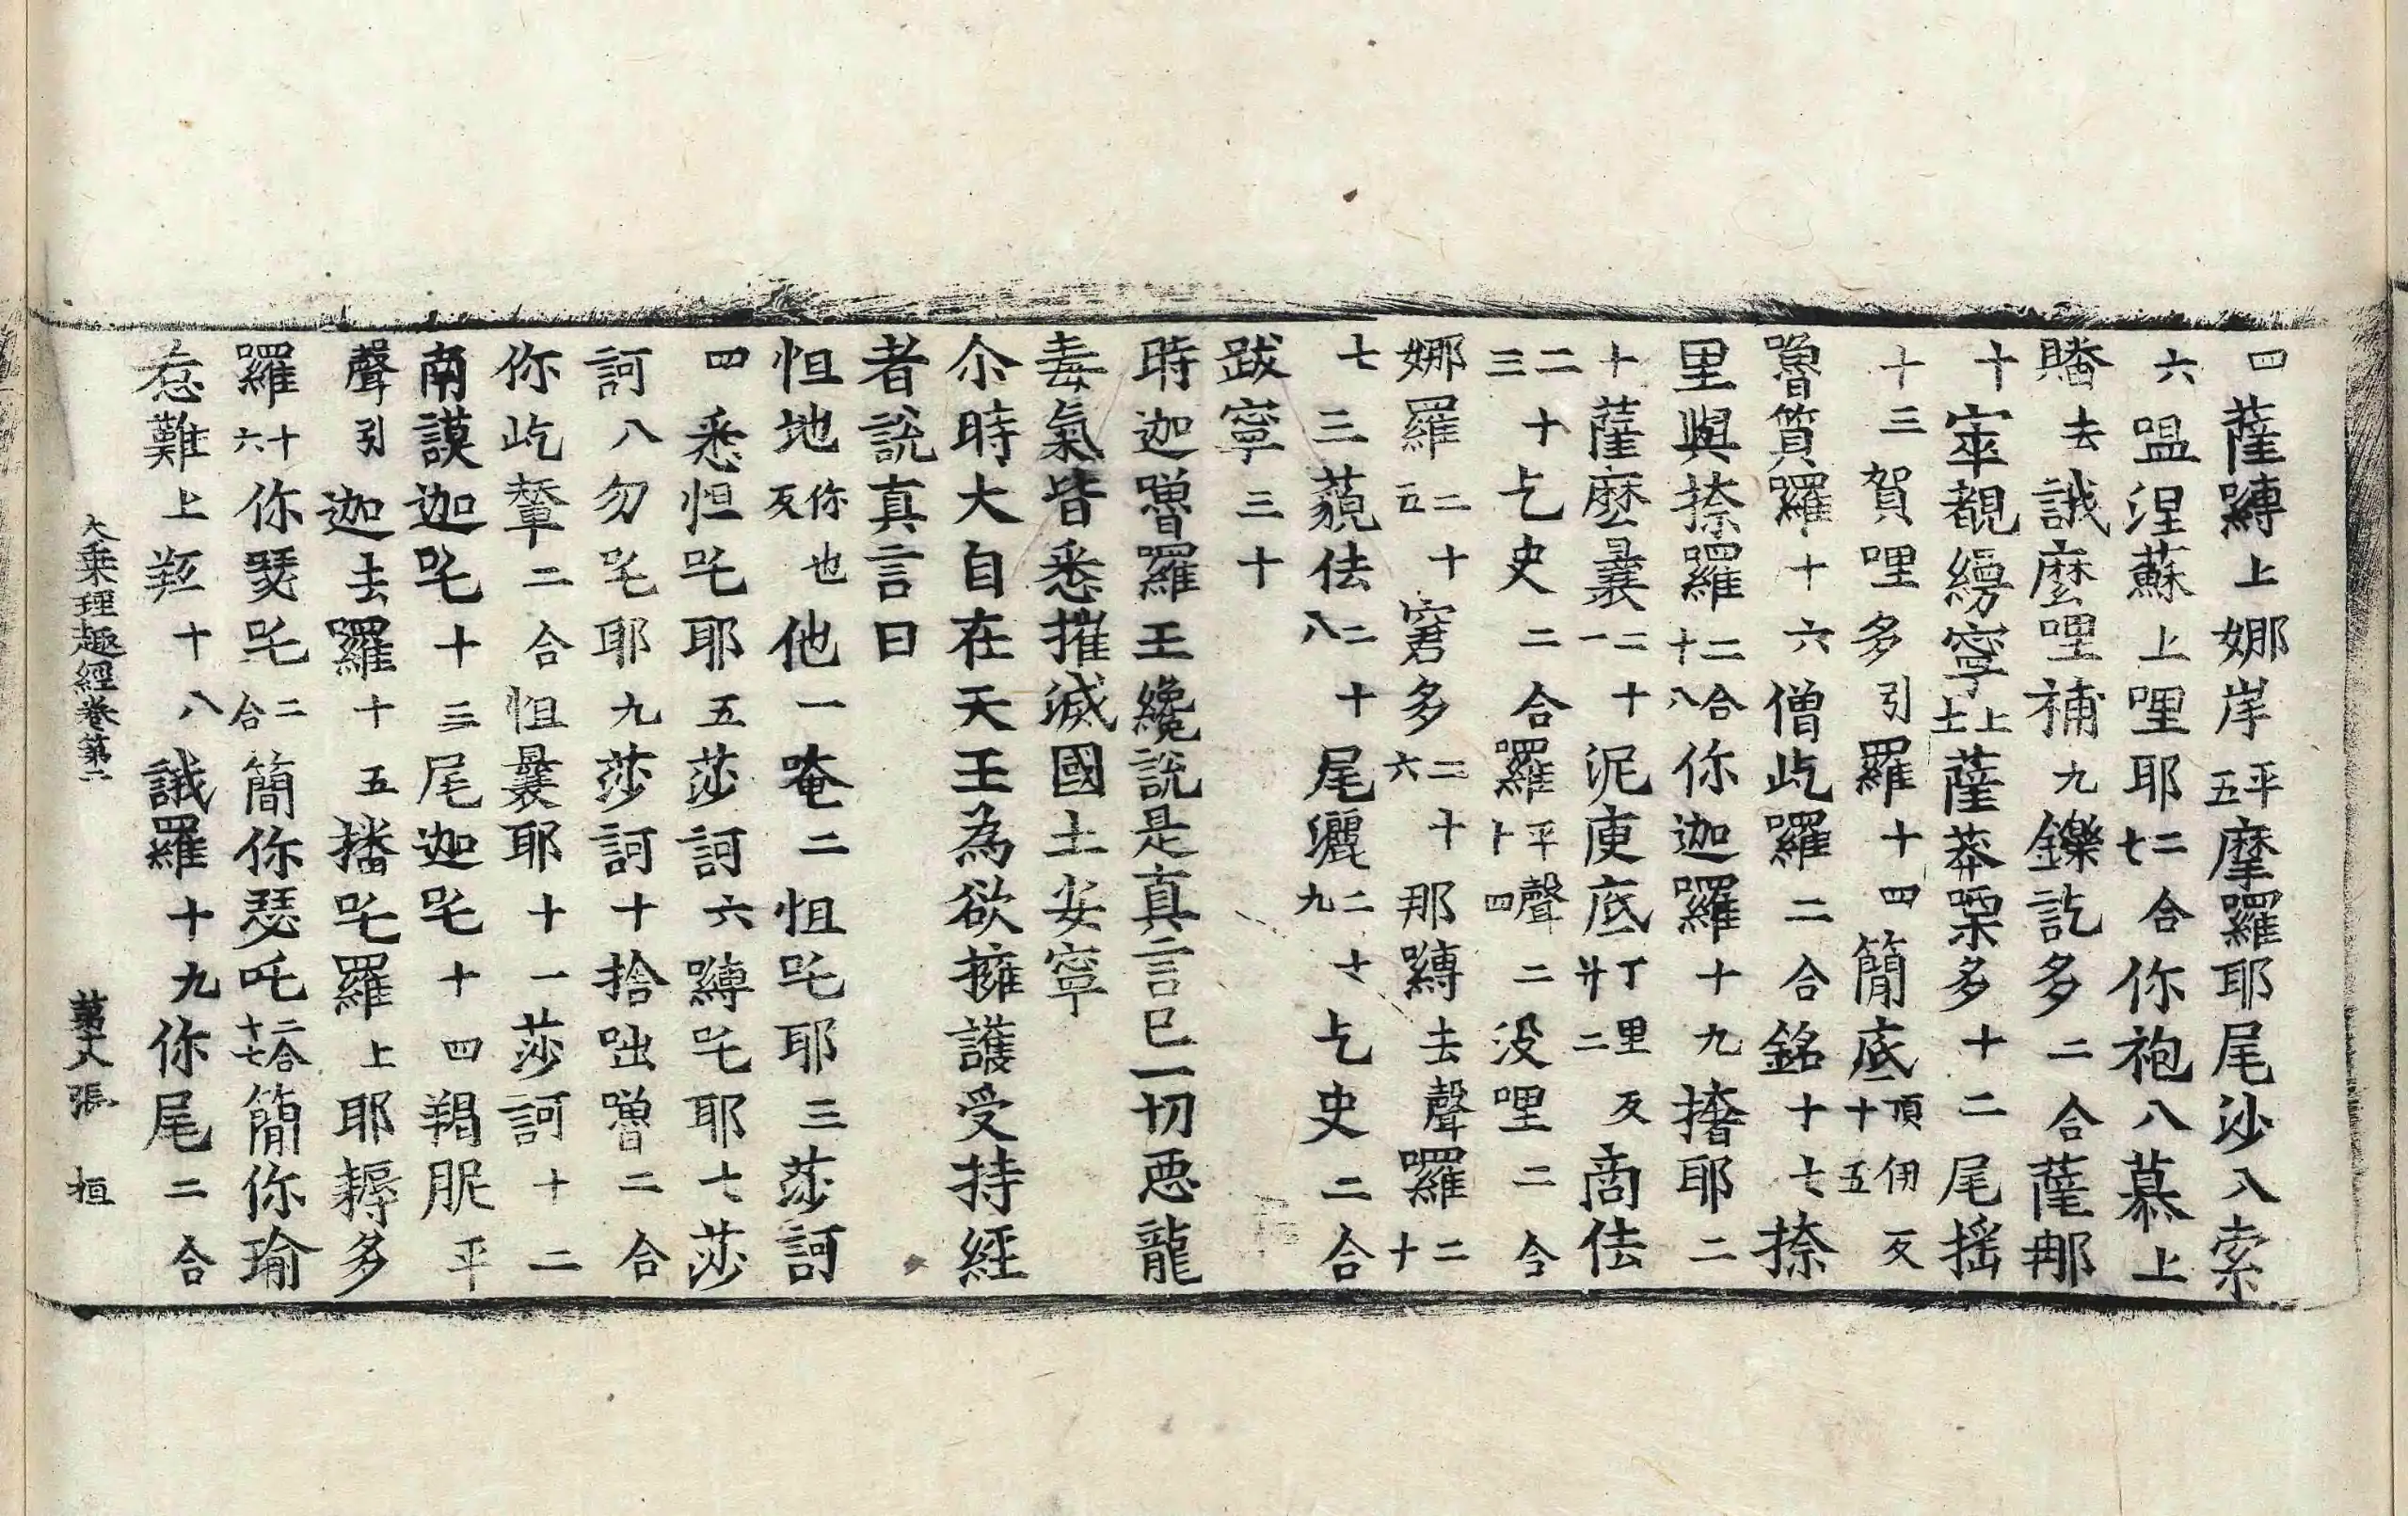 四薩嚩上娜岸平五摩羅耶尾沙入索
六嗢涅蘇上哩耶二合七你袍八慕上
去誐麼哩補九鑠訖多二合薩那
十宰覩寧上十一薩莽栗多十二尾搖
十三賀哩多引羅十四簡底頂伊反十五
嚕質羅十六僧屹羅二合銘十七捺
里與捺羅二合十八你迦羅十九撍耶二
十薩麼曩二十一泥庾底丁里反廿二商佉
二十三乞史二合羅平聲二十四没哩二合
娜羅二十五窘多二十六那嚩去聲羅二十
七三藐佉二十八尾灑二十九乞史二合
跋寧三十
時迦嚕羅王纔說是真言已一切惡龍
毒氣皆悉摧滅國土安寧
尒時大自在天王為欲擁護受持經
者說真言曰
怛地你也反他一唵二怛吒耶三莎訶
四悉怛吒耶五莎訶六嚩吒耶七莎
訶八勿吒耶九莎訶十捨咄嚕二合
你屹輦二合怛曩耶十一莎訶十二
南謨迦吒十三尾迦吒十四羯胝平
聲引迦去羅十五播吒羅上耶耨多
羅十六你瑟吒二合簡你瑟吒二合十七簡你瑜
惹難上十八誐羅十九你尾二合
大乘理趣經卷第二 第十八張 桓